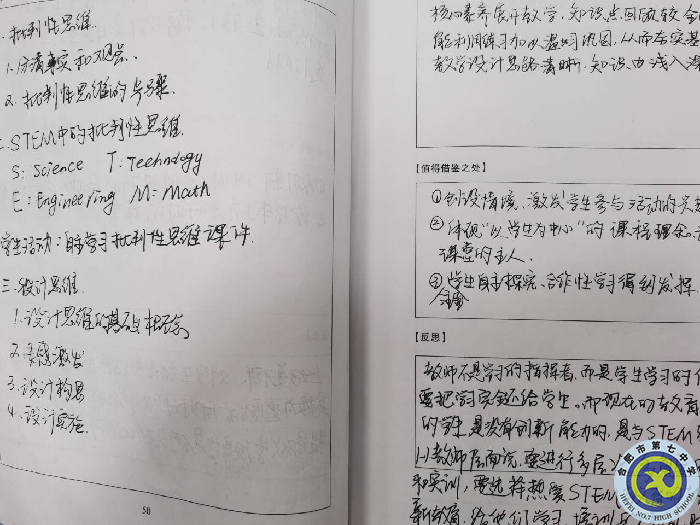 一.批判性思维
1.分清事实和观点.
2.批判性思维的步骤.
二.STEM中的批判性思维.
S: Science T: Technology
E: Engineering M: Math
学生活动:自主学习批判性思维课件.
三.设计思维
1.设计思维的基础概念
2.灵感激发
3.设计构思
4.设计实施.
50
核心素养展开教学,知识点回放较全
能利用练习加以温习巩固,从而夯实基
教学设计思路清晰,知识由浅入深
【值得借鉴之处】
①创设情境,激发学生参与活动的兴
②体现"以学生为中心"的课程理念,
课堂的主人.
③学生自主探究、合作性学习得到发挥
【反思】
教师不是学习的指挥者,而是学生学习的
要把学习交还给学生,而现在的教育
的学生是没有创新能力的,是与STEM
(1)教师层面说,要进行多层
和实训,要选择热爱STEM
新教育,给他们学习
合肥市第七中学
HEFEI NO.7 HIGH SCHOOL